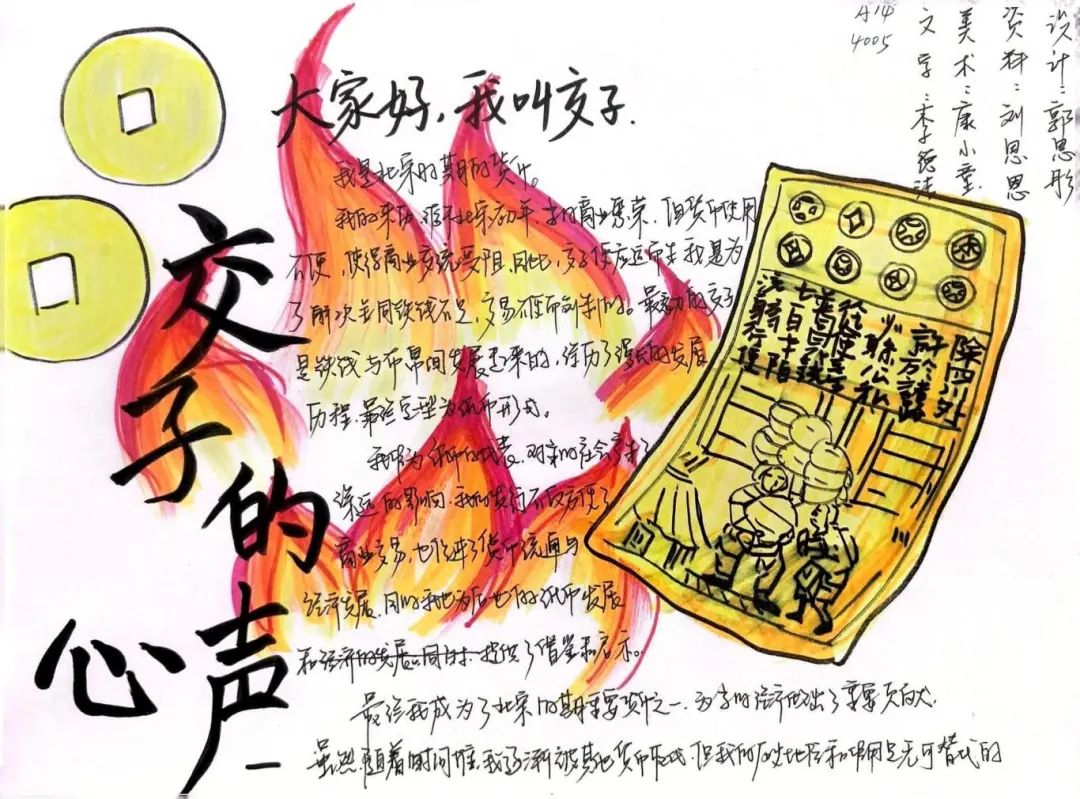 大家好,我叫交子.
交子的心声
A14
4005
设计:郭思彤
资料:刘思思
美术:康小童
文字:李
我是北宋时期的货币。
我的来历,源于北宋初年,当时商业繁荣,但货币使用
不便,使得商业交流受阻,因此,交子便应运而生,我是为
了解决当时铁钱不足,交易不便而创制的。最初的交子
是铁钱与布帛间发展起来的,经历了漫长的发展
历程,最终定型为纸币形式。
我作为纸币的代表,对宋的社会产生了
深远的影响.我的发行不仅方便了
商业交易,也促进了货币流通与
经济发展.同时我也为后世的纸币发展
和经济的发展,同时,提供了借鉴和启示。
最终我成为了北宋时期重要货币之一.为当时经济做出了重要贡献.
虽然随着时间推移,我逐渐被其他货币取代.但我的历史地位和作用是无可替代的
除四川外
許於諸路
公私
七百七十陌